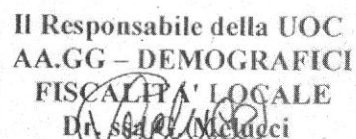 Il Responsabile della UOC
AA.GG – DEMOGRAFICI
FISCALITA' LOCALE
Dr. ssa